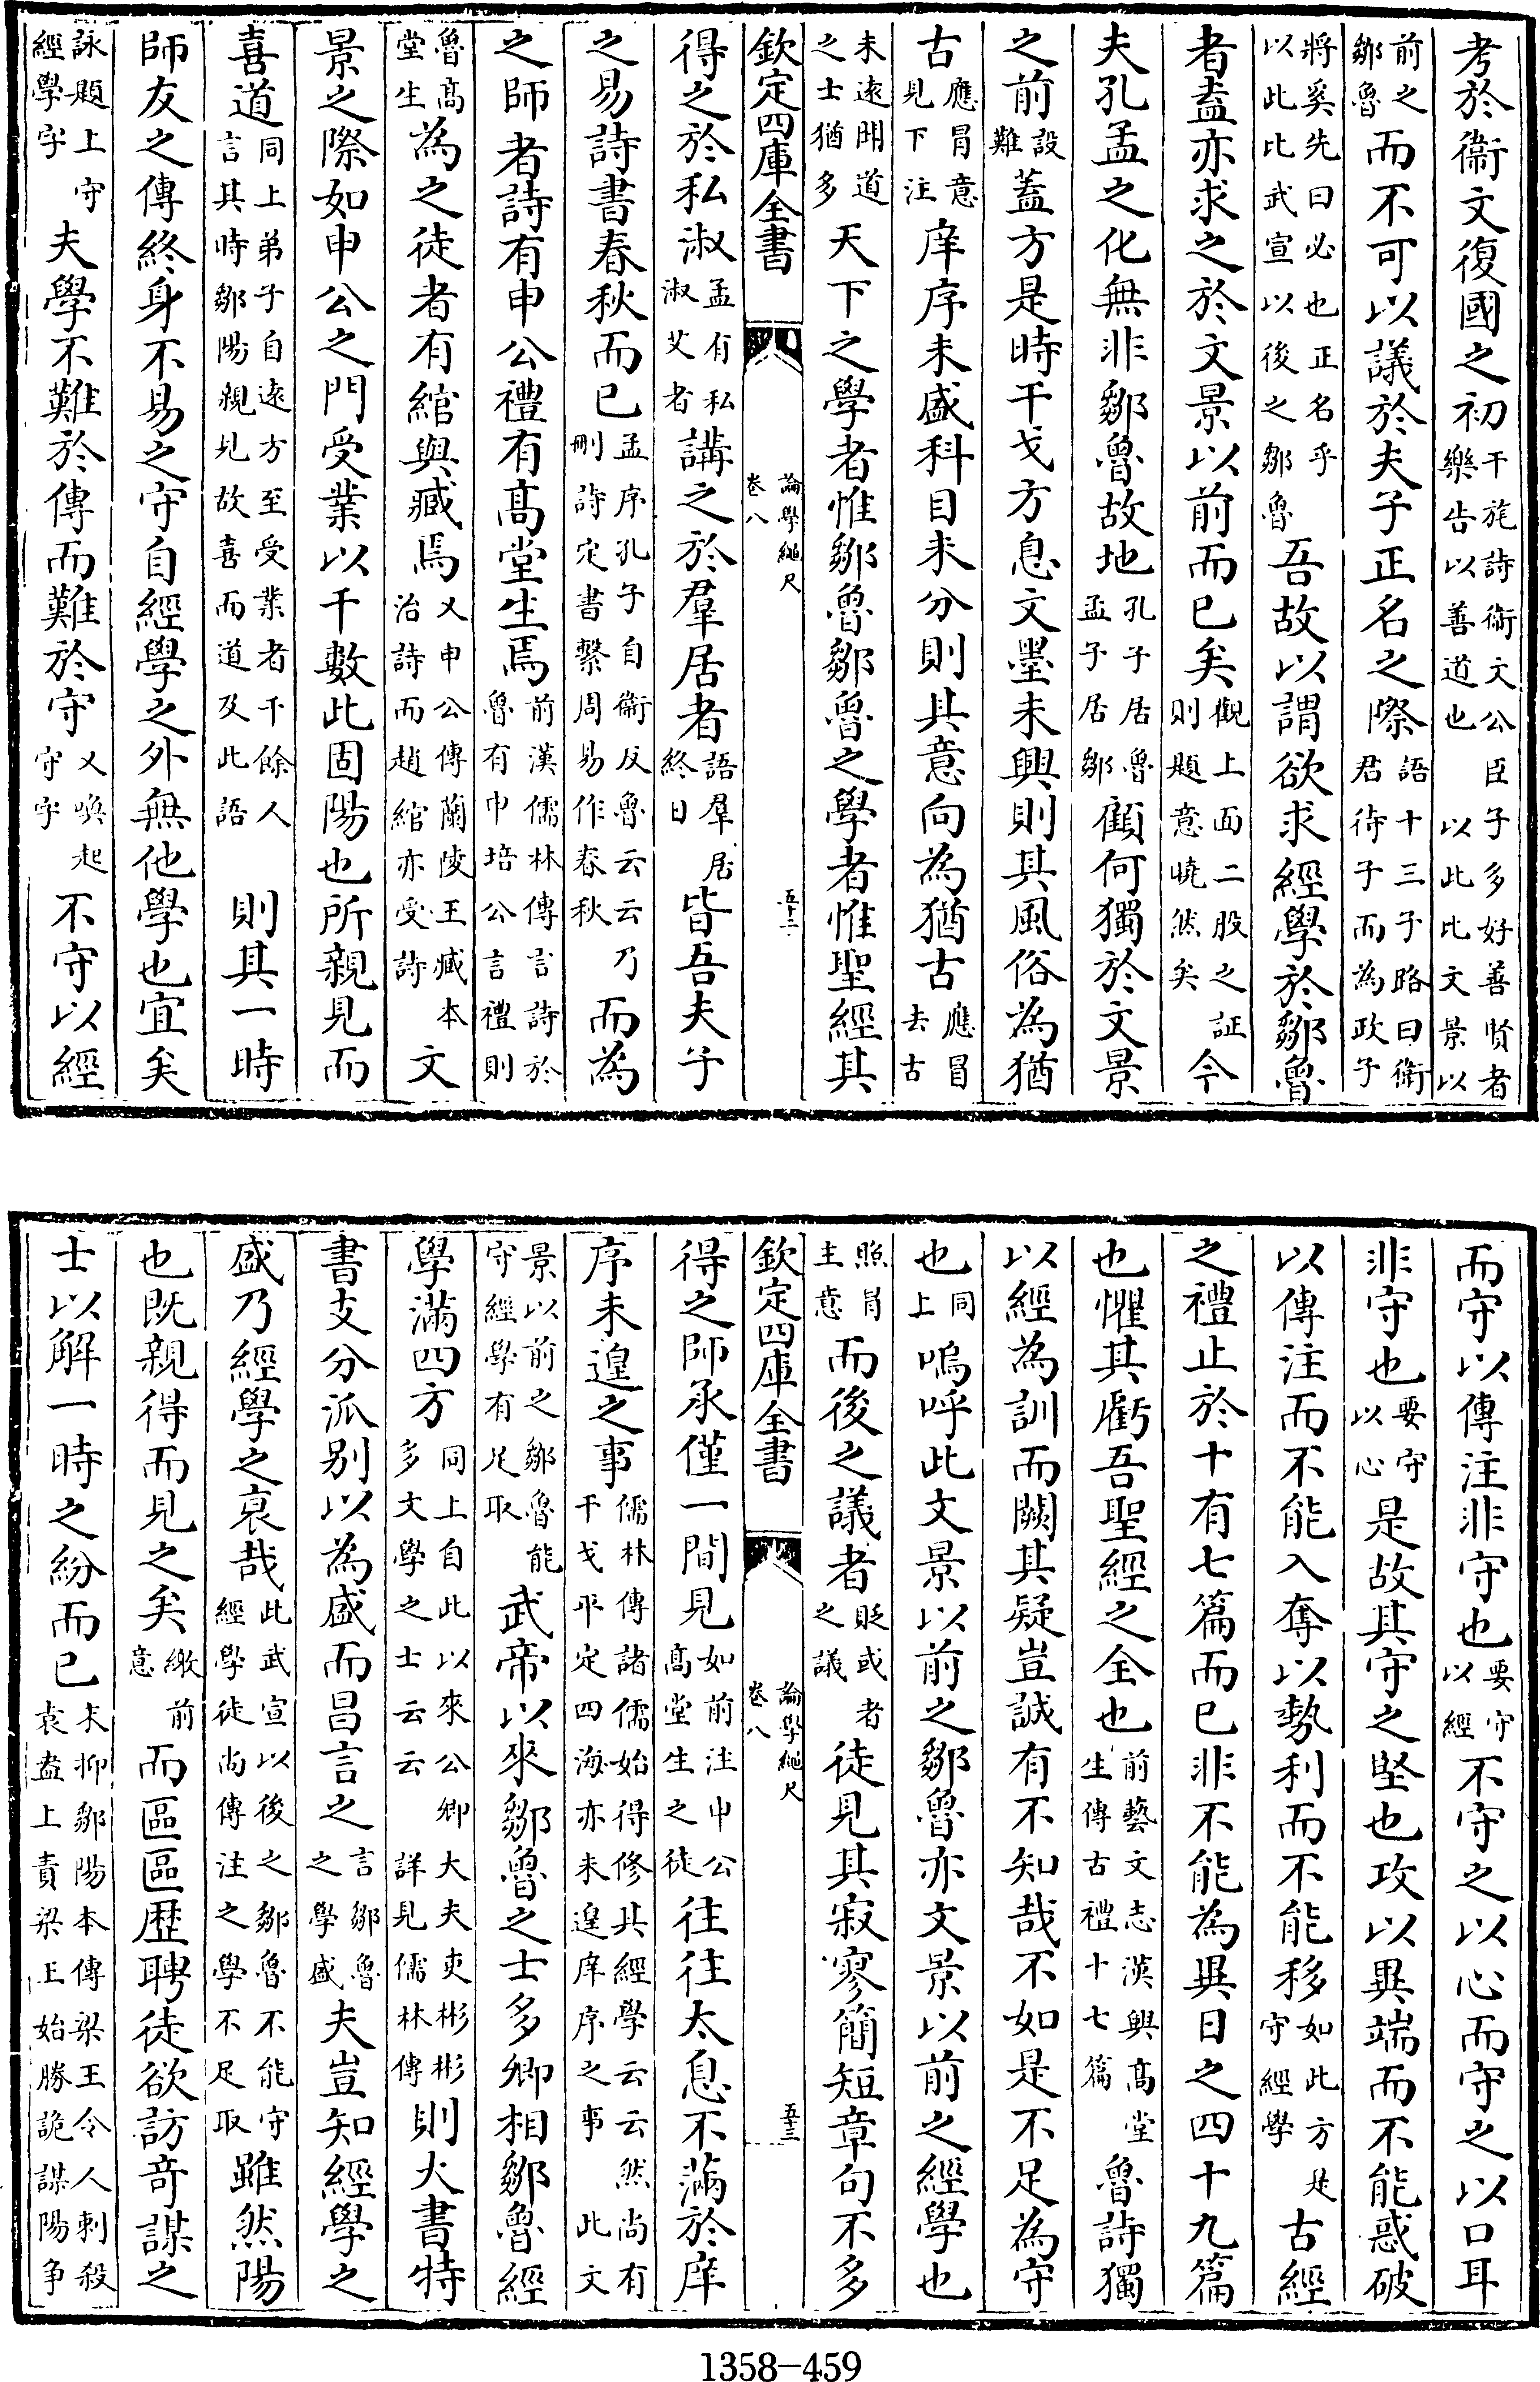 考於衞文復國之初干旄詩衞文公臣子多好善賢者樂告以善道也以此比文景以
前之鄒魯而不可以議於夫子正名之際語十三子路曰衛君待子而為政子
將奚先曰必也正名乎以此比武宣以後之鄒魯吾故以謂欲求經學於鄒魯
者盍亦求之於文景以前而已矣觀上面二股之証則題意曉然矣今
夫孔孟之化無非鄒魯故地孔子居魯孟子居鄒顧何獨於文景
之前設難蓋方是時干戈方息文墨未興則其風俗為猶
古應冒意見下注庠序未盛科目未分則其意向為猶古應冒去古
未遠聞道之士猶多天下之學者惟鄒魯鄒魯之學者惟聖經其
欽定四庫全書 論學繩尺卷八 五十二
得之於私淑孟有私淑艾者講之於羣居者語羣居終日皆吾夫子
之易詩書春秋而已孟序孔子自衞反魯云云乃刪詩定書繫周易作春秋而為
之師者詩有申公禮有高堂生焉前漢儒林傳言詩於魯有申培公言禮則
魯高堂生為之徒者有綰與臧焉又申公傳蘭陵王臧本治詩而趙綰亦受詩文
景之際如申公之門受業以千數此固陽也所親見而
喜道同上弟子自遠方至受業者千餘人言其時鄒陽親見故喜而道及此語則其一時
師友之傳終身不易之守自經學之外無他學也宜矣
詠題上守經學字夫學不難於傳而難於守又喚起守字不守以經
而守以傳注非守也要守以經不守之以心而守之以口耳
非守也要守以心是故其守之堅也攻以異端而不能惑破
以傳注而不能入奪以勢利而不能移如此方是守經學古經
之禮止於十有七篇而已非不能為異日之四十九篇
也懼其虧吾聖經之全也前藝文志漢興高堂生傳古禮十七篇魯詩獨
以經為訓而闕其疑豈誠有不知哉不如是不足為守
也同上嗚呼此文景以前之鄒魯亦文景以前之經學也
照冒主意而後之議者貶或者之議徒見其寂寥簡短章句不多
欽定四庫全書 論學繩尺卷八 五十三
得之師承僅一間見如前注申公高堂生之徒往往太息不滿於庠
序未遑之事儒林傳諸儒始得修其經學云云然尚有干戈平定四海亦未遑庠序之事此文
景以前之鄒魯能守經學有足取武帝以來鄒魯之士多卿相鄒魯經
學滿四方同上自此以來公卿大夫吏彬彬多文學之士云云詳見儒林傳則大書特
書支分派别以為盛而昌言之言鄒魯之學盛夫豈知經學之
盛乃經學之衰哉此武宣以後之鄒魯不能守經學徒尚傳注之學不足取雖然陽
也既親得而見之矣繳前意而區區歴聘徒欲訪竒謀之
士以解一時之紛而已末抑鄒陽本傳梁王令人刺殺袁盎上責梁王始勝詭謀陽争
1358-459